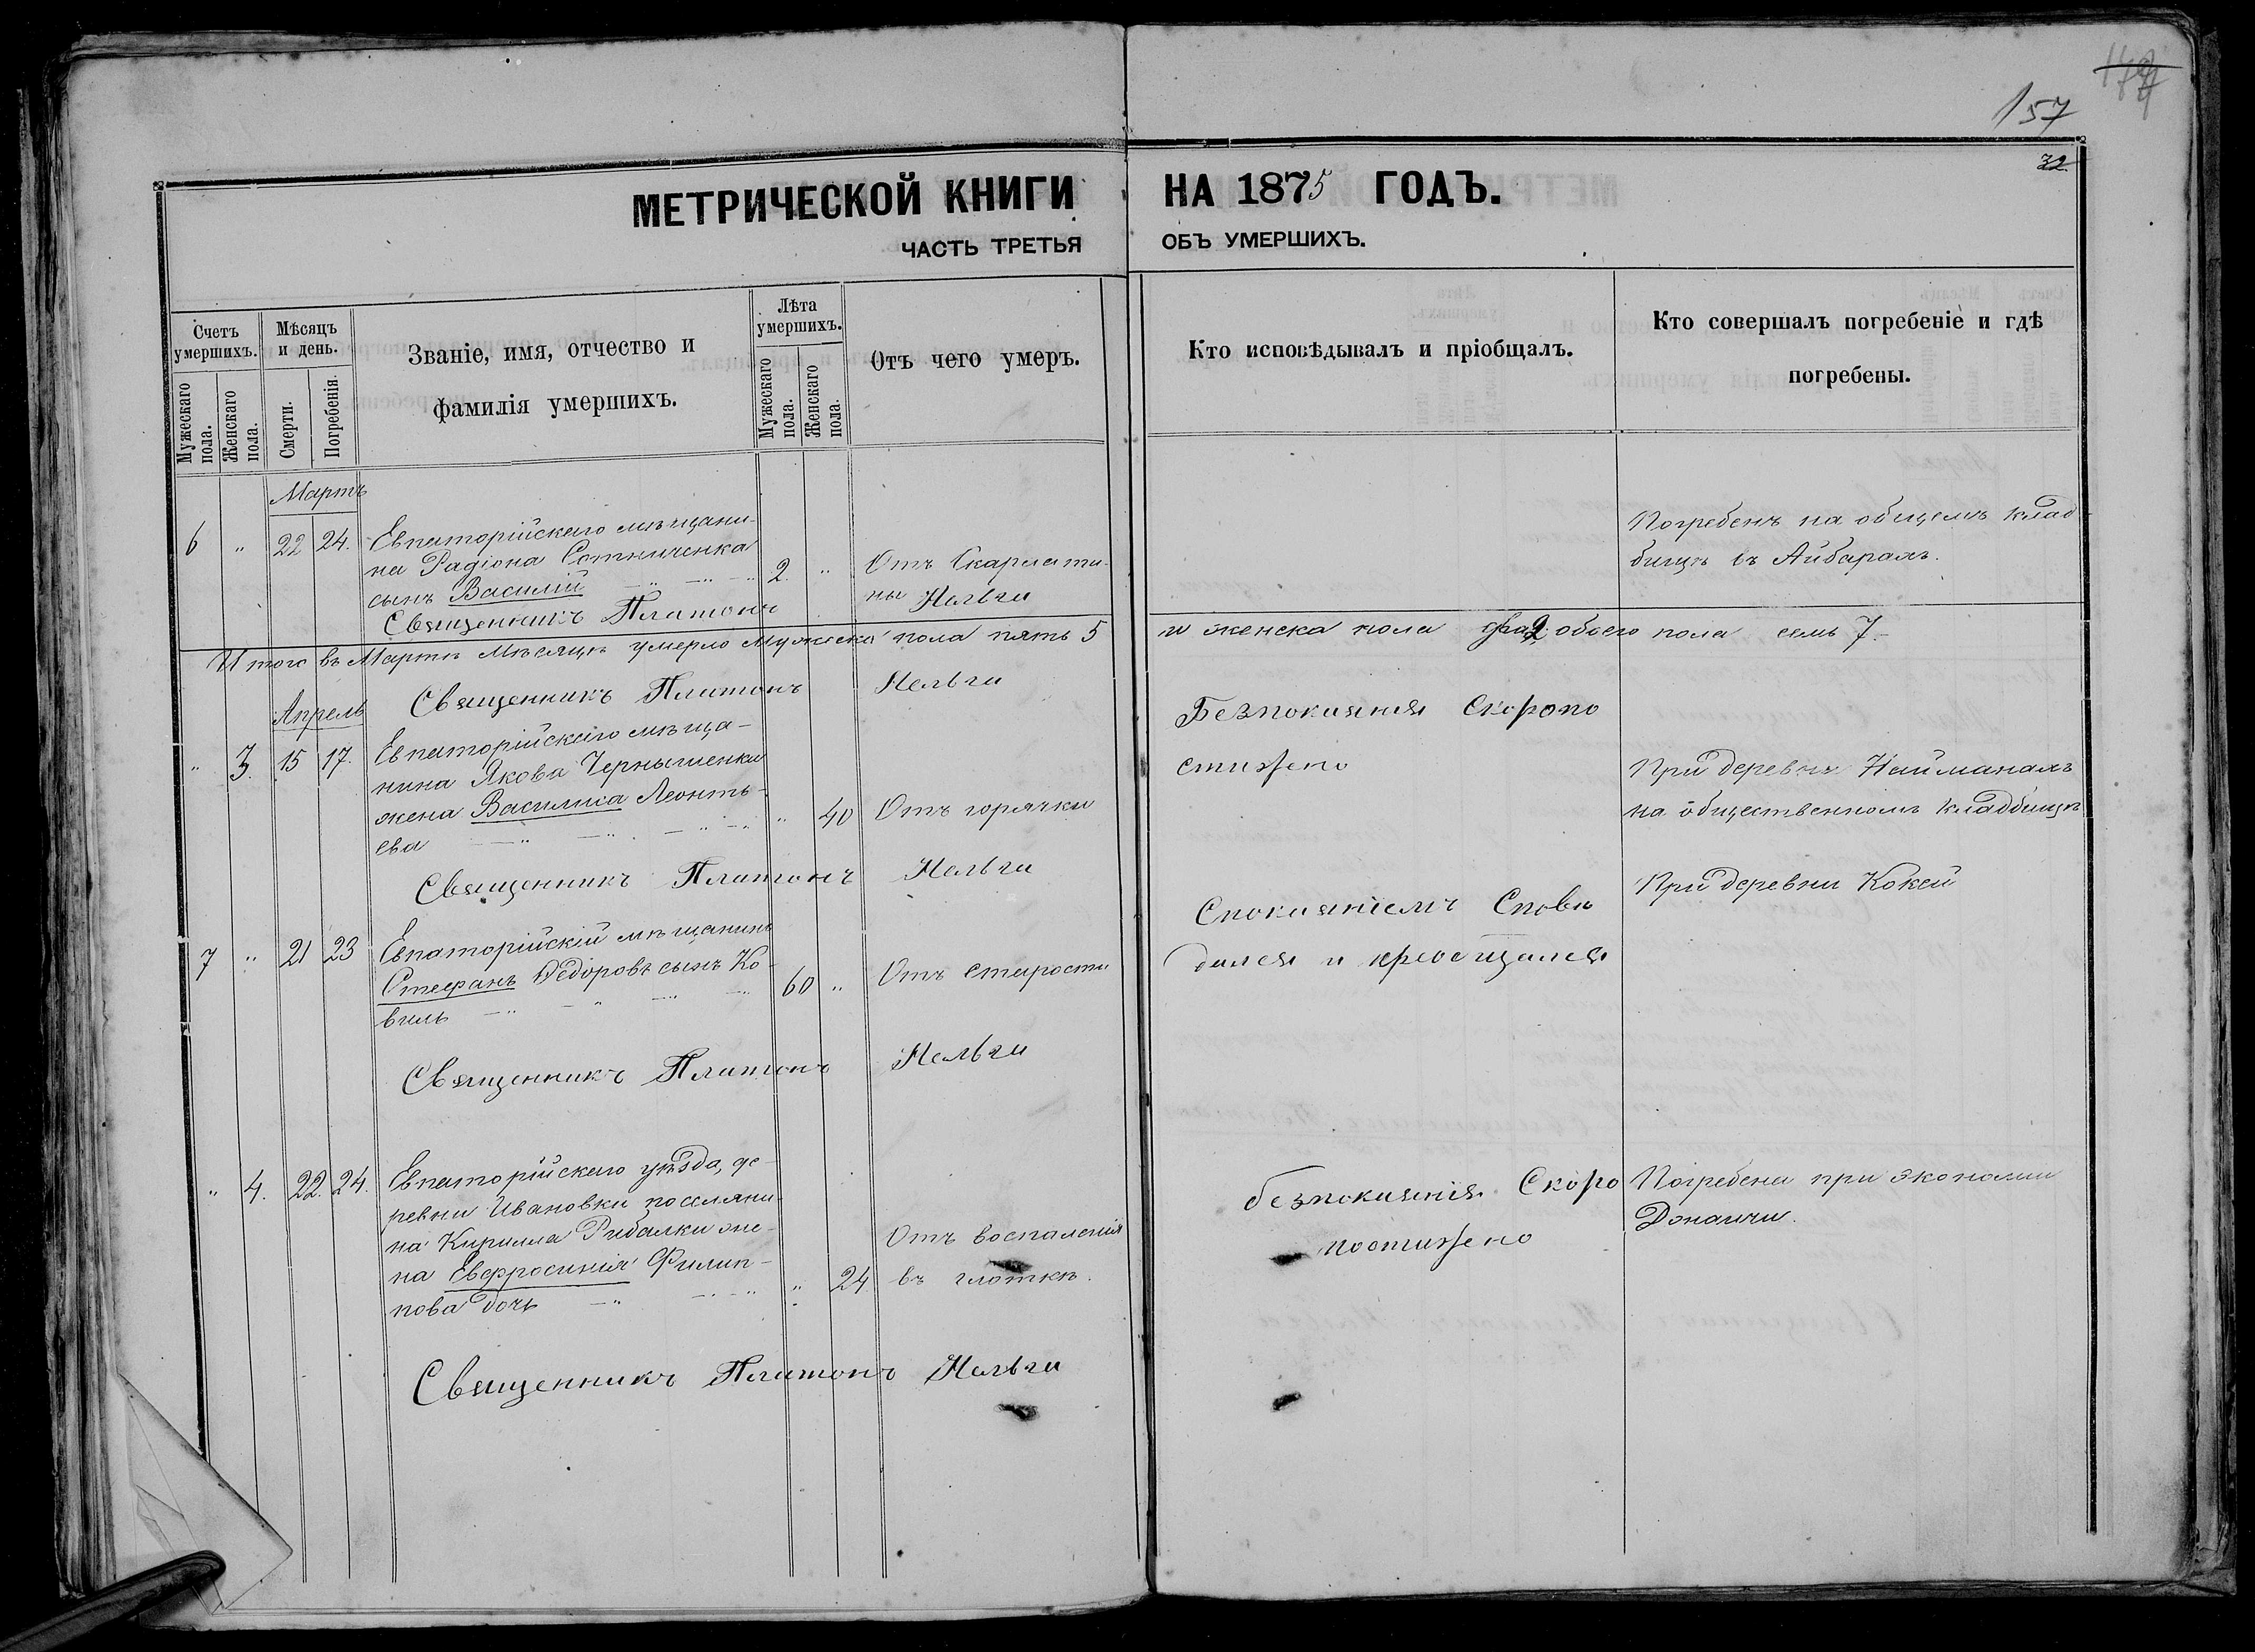 157
32
МЕТРИЧЕСКОЙ КНИГИ НА 1875 ГОДЪ.
ЧАСТЬ ТРЕТЬЯ ОБЪ УМЕРШИХЪ.
Счетъ умершихъ.
Мужескаго пола.
Женскаго пола.
Мѣсяцъ и день.
Смерти.
Погребенія.
Званіе, имя, отчество и
фамилія умершихъ.
Лѣта умершихъ.
Мужескаго пола.
Женскаго пола.
Отъ чего умеръ.
Кто исповѣдывалъ и пріобщалъ.
Кто совершалъ погребеніе и гдѣ
погребены.
Мартъ
6 " 22 24. Евпаторійскаго мѣщани-
на Радіона Сотниченка
сынъ Василій 2. " Отъ Скарлати-
ны
Погребенъ на общемъ клад
бищѣ въ Айбарахъ.
Священникъ Платонъ
Итого въ Мартѣ Мѣсяцѣ умерло Мужеска пола пять 5 и женска пола два 2 обоего пола семь 7
Священникъ Платонъ
Апрель
" 3. 15 17. Евпаторійскаго мѣща-
нина Якова Чернышенки
жена Василиса Леонть-
ева " 40 Отъ горячки
Безпокияния Скоропо
стижено
При деревнѣ Найманахъ
на общественномъ кладбищѣ
Священникъ Платонъ
7 " 21 23 Евпаторійскій мѣщанинъ
Стефанъ Ѳедоровъ сынъ Ко-
виль 60 " Отъ старости
Спокияніемъ Сповѣ
дался и преощался
При деревни Кокей
Священникъ Платонъ
" 4. 22. 24. Евпаторійскаго уѣзда, де-
ревни Ивановки поселяни-
на Кирилла Рибалки же-
на Евфросинія Филип-
пова дочь " 24 Отъ воспаленія
въ глоткѣ.
безпокияния Скоро
постижено
Погребена при экономии
Донаичи.
Священникъ Платонъ